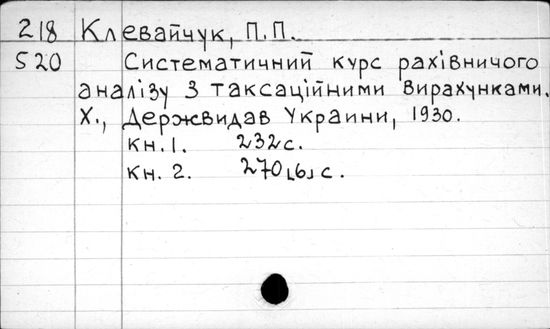 218 Клевайчук, П.П.
520 Систематичний курс рахівничого
аналізу з таксаційними вирахунками.
Х., Держвидав Украини, 1930.
кн. 1. 232 с.
кн. 2. 270 [6] с.